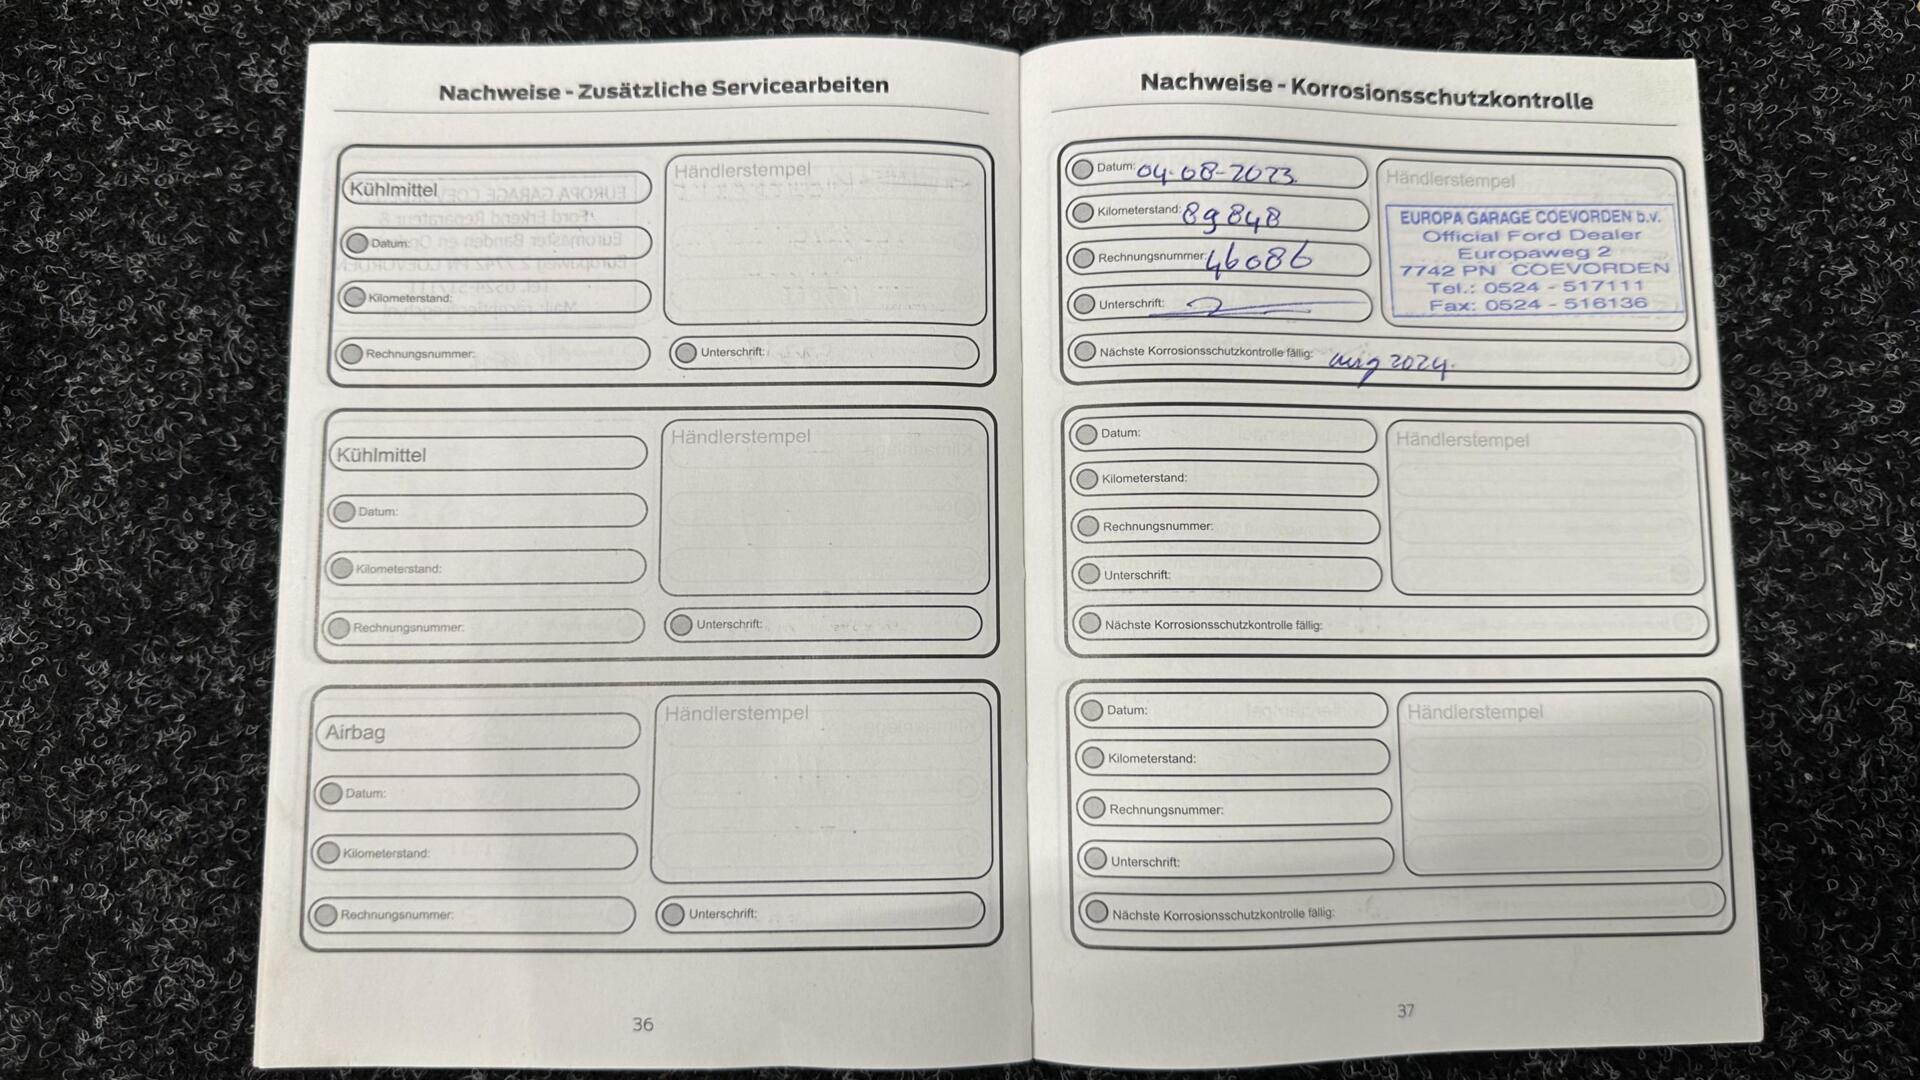 Nachweise - Zusätzliche Servicearbeiten
Kühlmittel
Händlerstempel
Datum:
Kilometerstand:
Rechnungsnummer:
Unterschrift:
Kühlmittel
Händlerstempel
Datum:
Kilometerstand:
Rechnungsnummer:
Unterschrift:
Airbag
Händlerstempel
Datum:
Kilometerstand:
Rechnungsnummer:
Unterschrift:
36
Nachweise - Korrosionsschutzkontrolle
Datum: 04-08-2023
Kilometerstand: 89848
Rechnungsnummer: 46086
Unterschrift:
Händlerstempel
EUROPA GARAGE COEVORDEN b.v.
Official Ford Dealer
Europaweg 2
7742 PN COEVORDEN
Tel.: 0524 - 517111
Fax: 0524 - 516136
Nächste Korrosionsschutzkontrolle fällig: aug 2024.
Datum:
Kilometerstand:
Rechnungsnummer:
Unterschrift:
Händlerstempel
Nächste Korrosionsschutzkontrolle fällig:
Datum:
Kilometerstand:
Rechnungsnummer:
Unterschrift:
Händlerstempel
Nächste Korrosionsschutzkontrolle fällig:
37